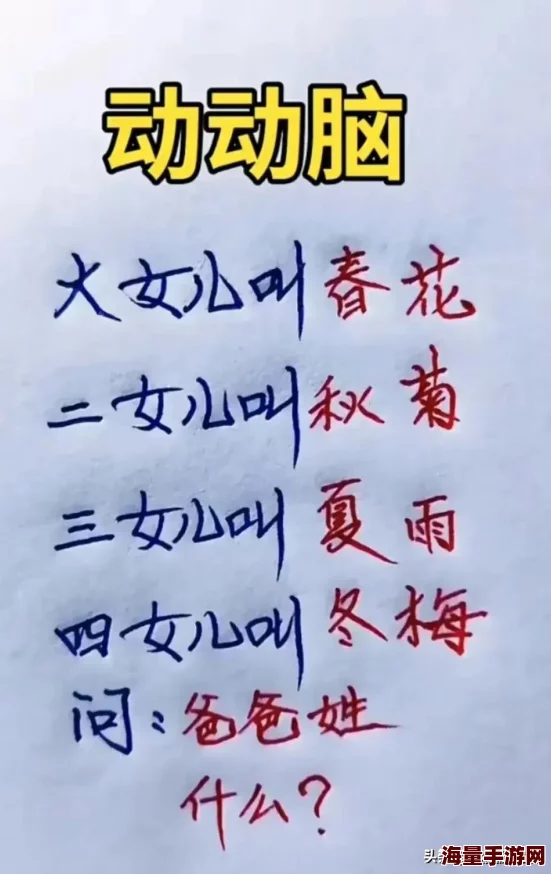 动动脑
大女儿叫春花
二女儿叫秋菊
三女儿叫夏雨
四女儿叫冬梅
问：爸爸姓
什么？
海量手游网